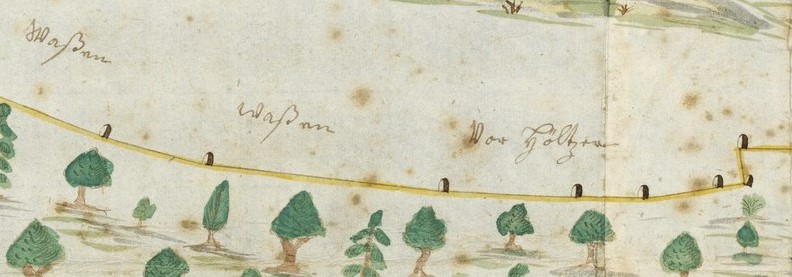 Waßen
Waßen
Vor Höltzer